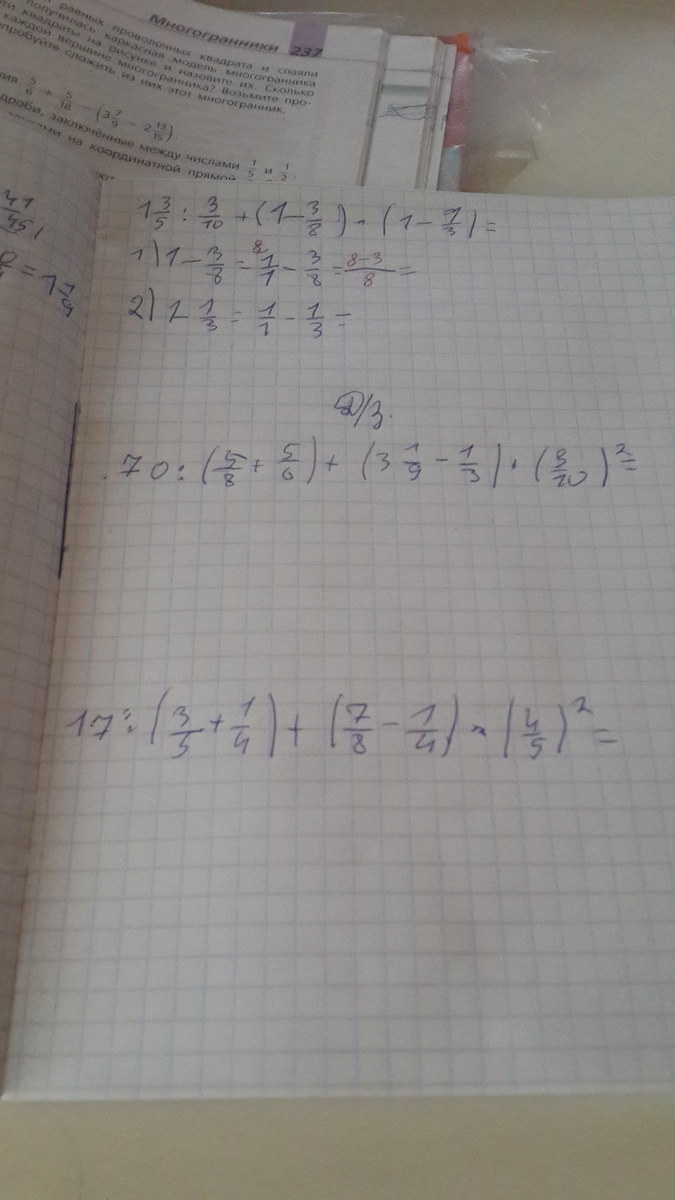 Многогранники 237
равных проволочных квадрата и спаяли
получилась каркасная модель многогранника
квадраты на рисунке и назовите их. Сколько
каждой вершине многогранника? Возьмите про-
пробуйте сложить из них этот многогранник.
5/6 + 5/18 − (3 7/9 − 2 13/15).
дроби, заключённые между числами 1/5 и 1/2.
на координатной прямой
41/45,
= 1 1/9
1 3/5 : 3/10 + (1 − 3/8) · (1 − 1/3) =
1) 1 − 3/8 = 8 1/1 − 3/8 = 8−3/8 =
2) 1 − 1/3 = 1/1 − 1/3 =
Д/з.
70 : (5/8 + 5/6) + (3 1/9 − 1/3) · (3/10)² =
17 : (3/5 + 1/4) + (7/8 − 1/4) · (4/5)² =